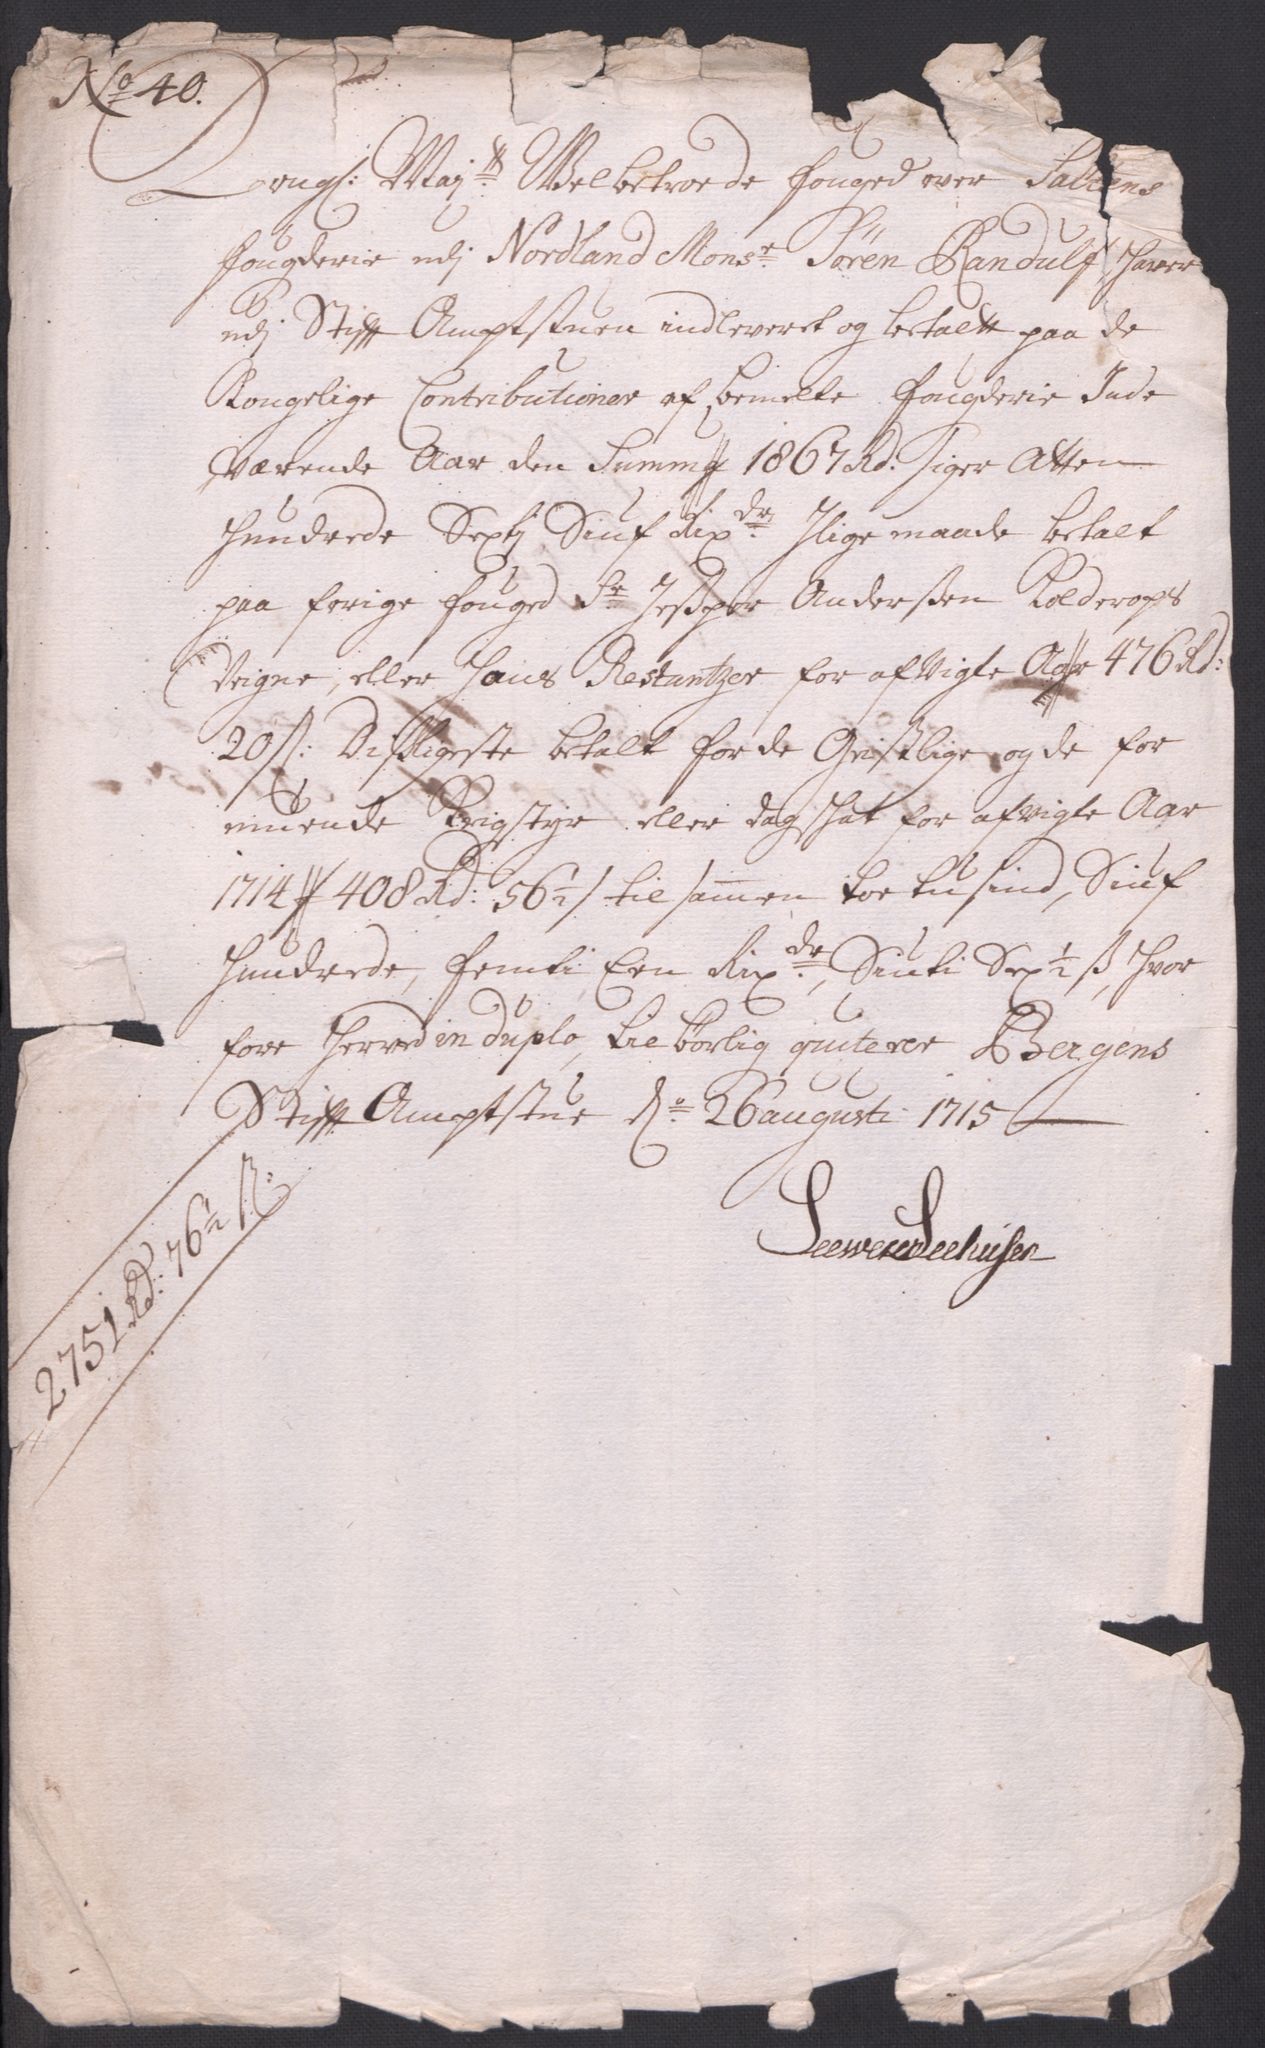 No 40.
Kongl: Maj:ts Welbetroede fouged over Saltens
fougderie udj Nordland Monsr: Sören Randulf, hafver
udj Stifft Amptstuen indleveret og betalt paa de
Kongelige Contributioner af bemelte fougderie Inde
værende Aar den Summa 1867 Rd: siger Atten
hundrede Sextj Siuf Rixdr: Iligemaade betalt
paa forige fouged Sr Jesper Anderßen Kolderops
Veigne, eller hans Restantzer for afvigte Aar 476 Rd:
20 ß: Disligeste betalt for de Geistlige og de for
muende Krigstyr eller dagskat for afvigte Aar
1714 // 408 Rd: 56½ ß til sammen toe tusind, Siuf
hundrede, femti Een Rixdr:, Siuti Sex ½ ß, hvor
fore herved in duplo, till börlig quiterer Bergens
Stifft Amptstue do: 26 augusti 1715
Seewer Seehusen
2751 Rd: 76½ ß: